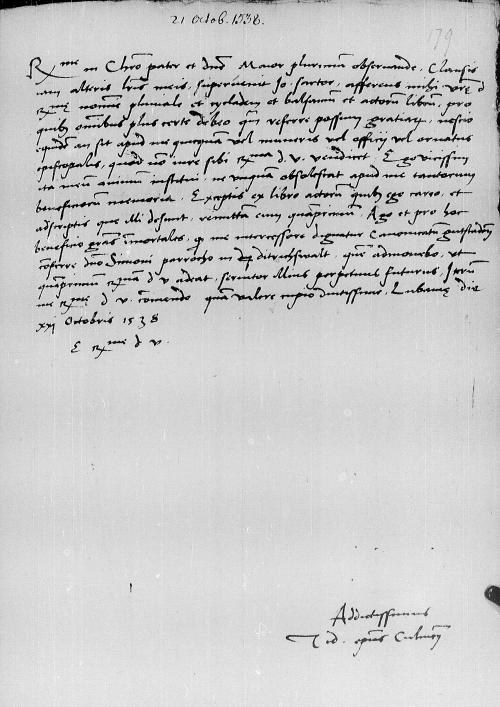 21 Octob. 1538.
179
R.me in Chro pater et dne Maior plurimum observande. Clausis
iam alteris lris meis, supervenit Jo. sartor, afferens mihi vre d
r.me nomine pluviale et cycladem et balsamum et actorum librum, pro
quibus omnibus plus certe debeo quam referre possum gratiarum, nescio
equidem an sit apud me quicquam vel muneris vel officij vel ornatus
episcopalis, quod non iure sibi r.ma d. v. vendicet. Ego vicissim
ita meum animum institui, ne unquam obsolescat apud me tantorum
beneficiorum memoria. Exceptis ex libro actorum quibus ego careo, et
adscriptis que illi desunt, remittam eum quamprimum. Ago et pro hoc
beneficio gras immortales, qd me intercessore dignatur Canonicatum
conferre dno Simoni parocho in quem admonebo, ut
quamprimum r.mam d v adeat, servitor illius perpetuus futurus. Iterum
me r.me d v. comendo quam valere cupio diutissime. Lubavie die
xxj Octobris 1538
E r.me d v.
Addictissimus
Tid. epus Culmen